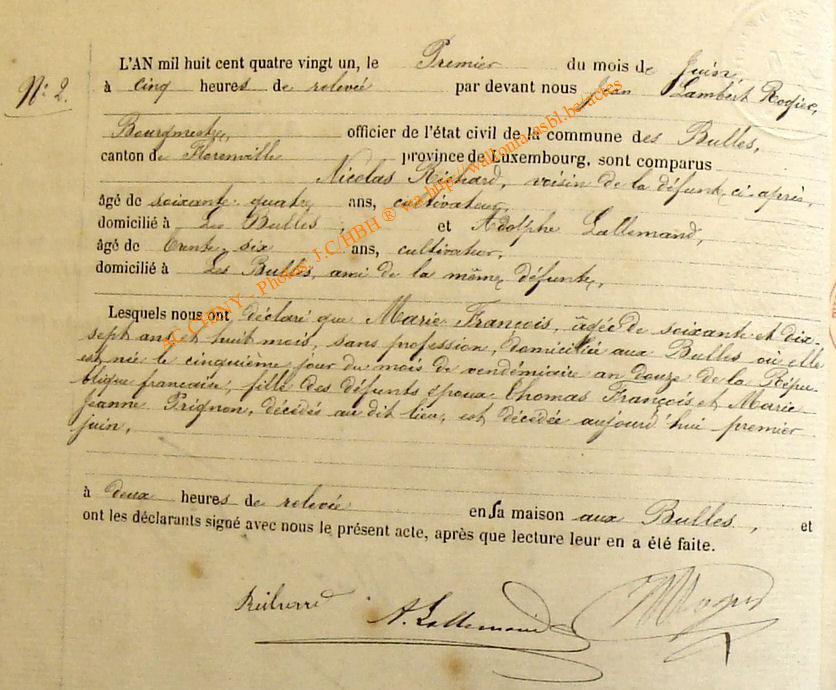 L'AN mil huit cent quatre vingt un, le Premier du mois de Juin,
N° 2. à cinq heures de relevée par devant nous Jean Lambert Rogier,
Bourgmestre, officier de l'état civil de la commune des Bulles,
canton de Florenville province de Luxembourg, sont comparus
Nicolas Richard, voisin de la défunte ci-après,
âgé de soixante quatre ans, cultivateur,
domicilié à Les Bulles, et Adolphe Lallemand,
âgé de trente-six ans, cultivateur,
domicilié à Les Bulles, ami de la même défunte,
Lesquels nous ont déclaré que Marie François, âgée de soixante et dix-
sept ans et huit mois, sans profession, domiciliée aux Bulles où elle
est née le cinquième jour du mois de vendémiaire an douze de la Répu-
blique française, fille des défunts époux Thomas François et Marie
Jeanne Prignon, décédés au dit lieu, est décédée aujourd'hui premier
juin,
à deux heures de relevée en sa maison aux Bulles, et
ont les déclarants signé avec nous le présent acte, après que lecture leur en a été faite.
Richard A. Lallemand
JC CHINY - Photos J.C/HBH ® via http://wallonia.asbl.be/actes